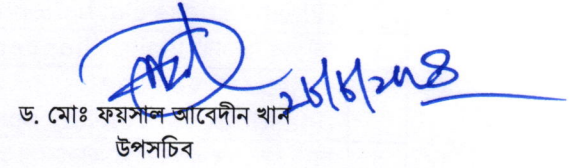 ড. মোঃ ফয়সাল আবেদীন খান
উপসচিব